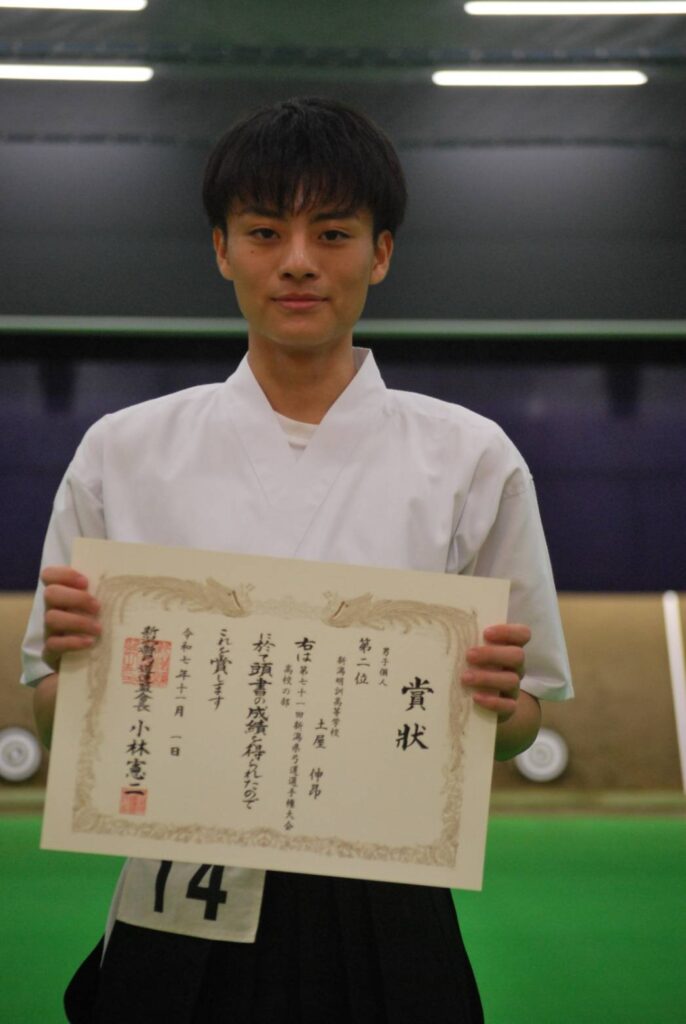 賞状
男子個人
第二位
新潟明訓高等学校
土屋 伸昂
右は第七十一回新潟県弓道選手権大会
高校の部
に於て頭書の成績を得られたので
これを賞します
令和七年十一月一日
新潟県弓道連盟会長 小林憲二
14